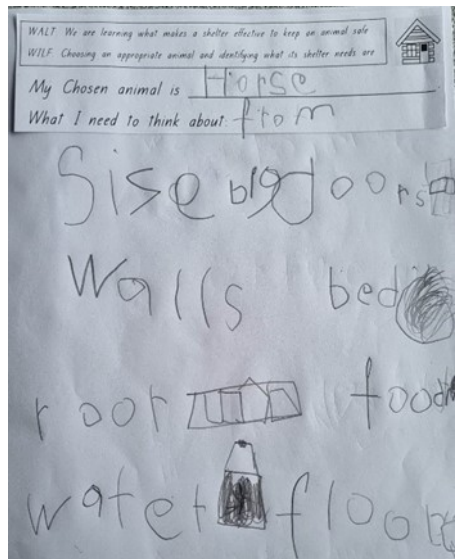 WALT We are learning what makes a shelter effective to keep an animal safe
WILF Choosing an appropriate animal and identifying what its shelter needs are
My Chosen animal is Horse
What I need to think about: from
Sise big doors
Walls bed
roof food
water floor